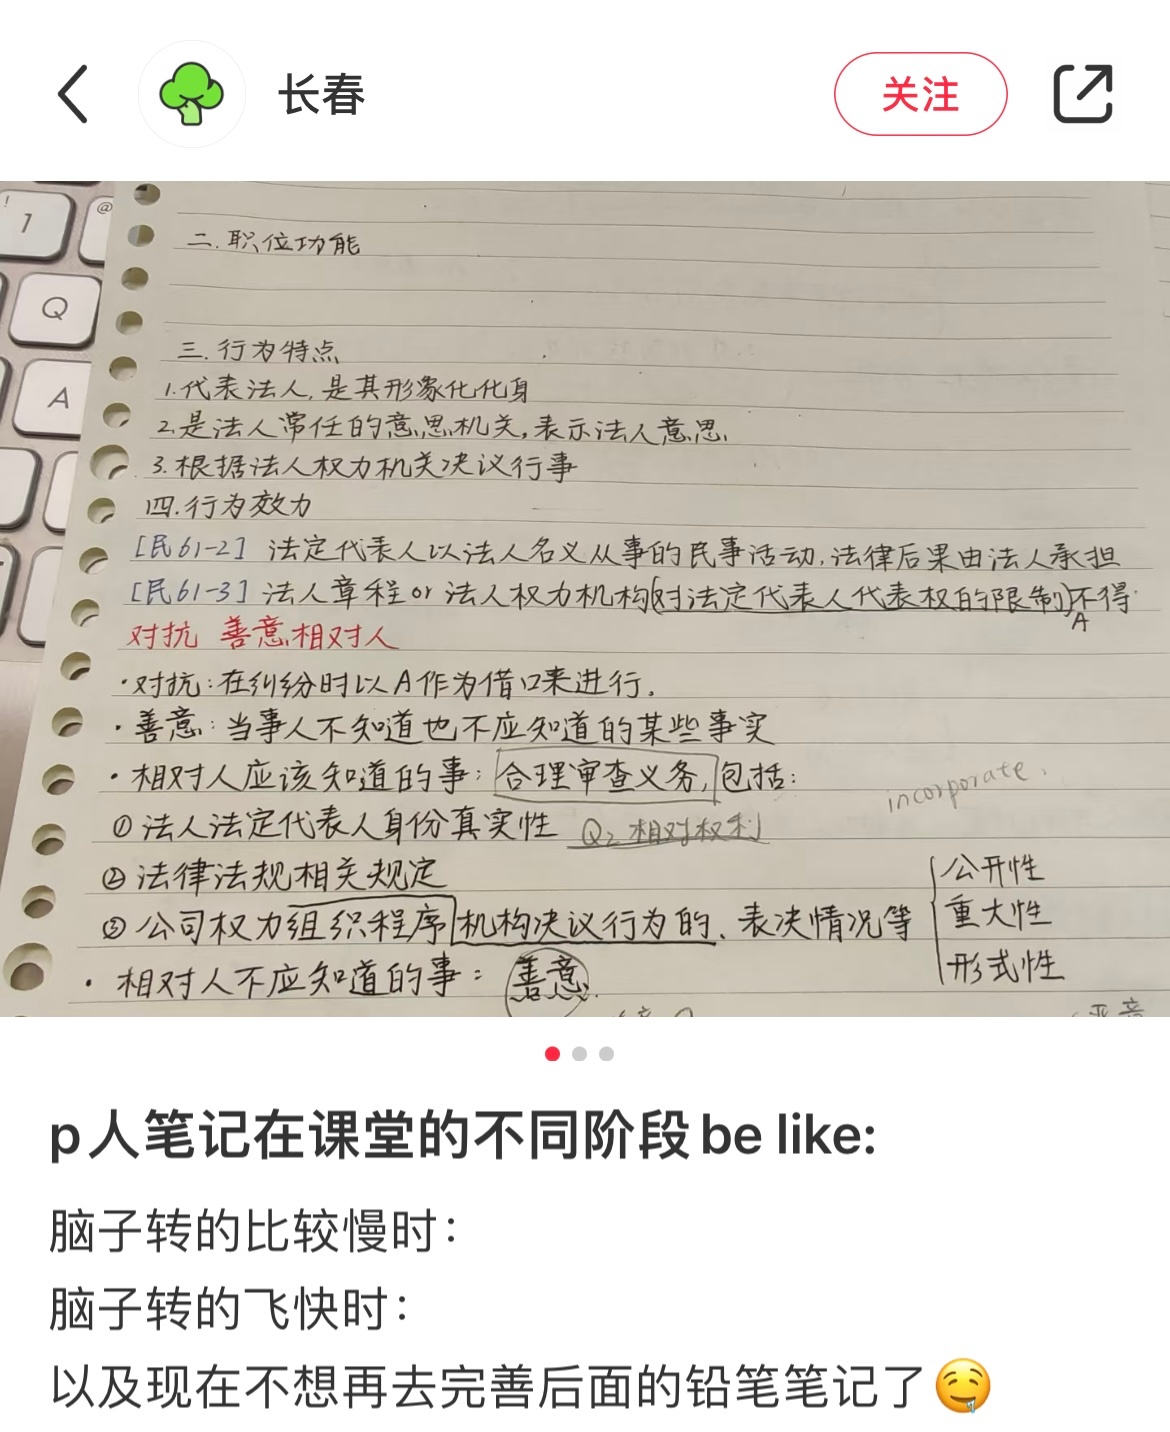 长春
关注
! 1 @
Q
A
二.职位功能
三.行为特点
1.代表法人,是其形象化化身
2.是法人常任的意思机关,表示法人意思.
3.根据法人权力机关决议行事
四.行为效力
[民61-2] 法定代表人以法人名义从事的民事活动,法律后果由法人承担
[民61-3] 法人章程or法人权力机构(对法定代表人代表权的限制)不得
A
对抗 善意相对人
·对抗:在纠纷时以A作为借口来进行.
·善意:当事人不知道也不应知道的某些事实
·相对人应该知道的事:合理审查义务,包括:
incorporate.
①法人法定代表人身份真实性 Q2相对权利
②法律法规相关规定
③公司权力组织程序机构决议行为的、表决情况等
公开性
重大性
形式性
·相对人不应知道的事:善意.
p人笔记在课堂的不同阶段be like:
脑子转的比较慢时:
脑子转的飞快时:
以及现在不想再去完善后面的铅笔笔记了🤤